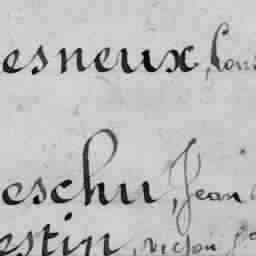 esneux, Lou
eschu, Jean
estin, victor